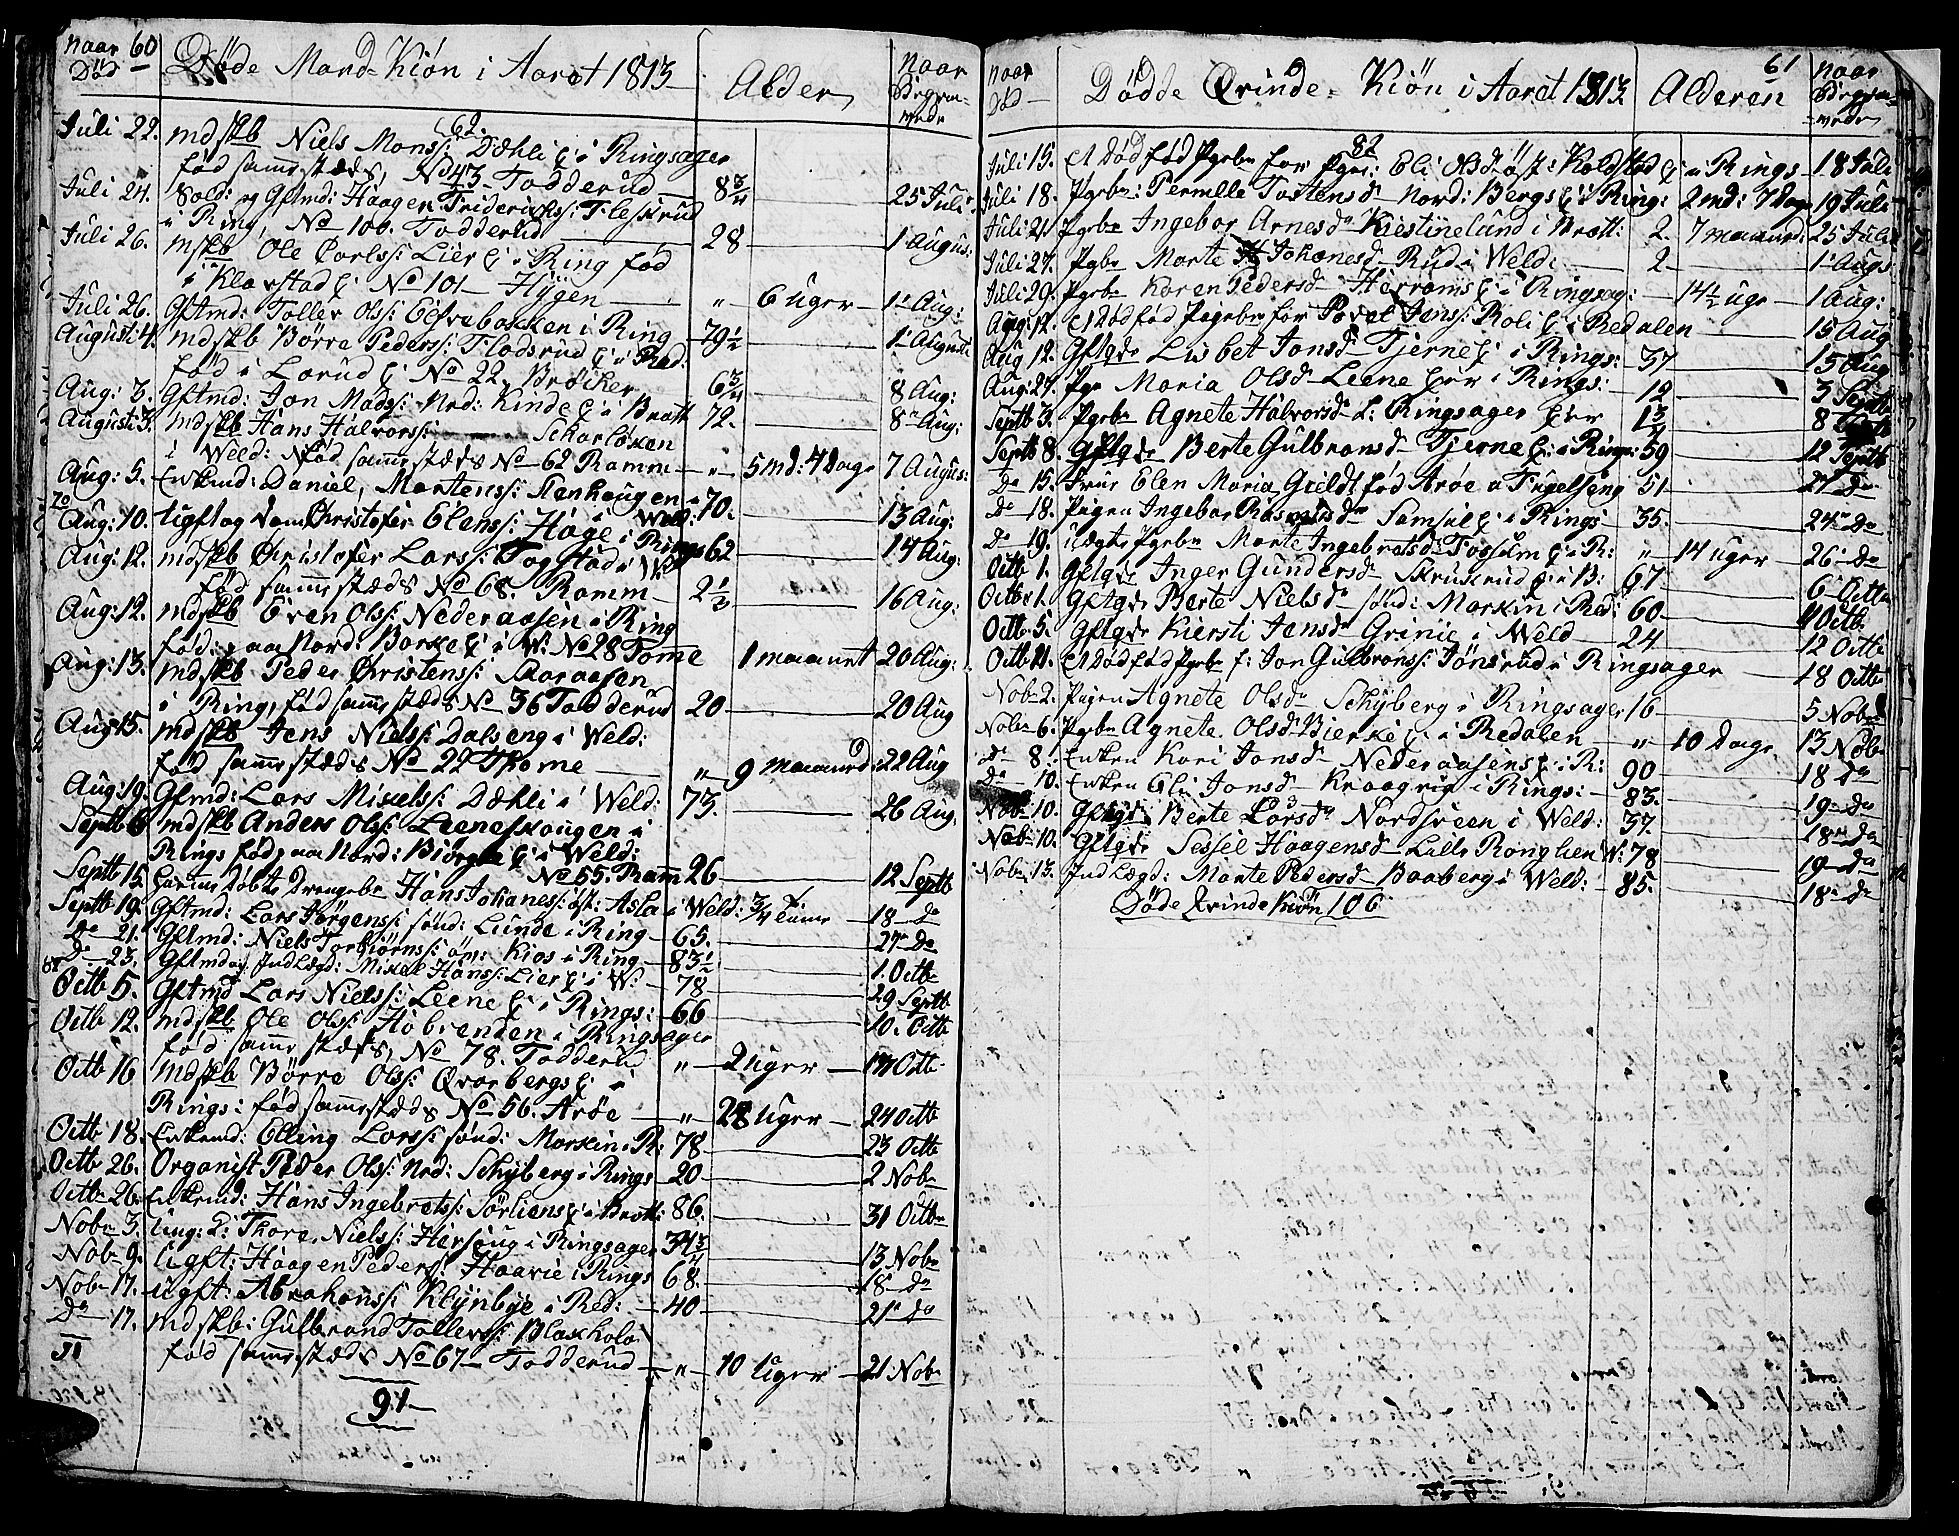 Naar Død
60
Døde Mand-Kiøn i Aaret 1813
Alder
Naar Begravede
62.
Juli 22. mdskb Niels Mons: Dæhli E: i Ringsager
fød samme stæds, No 43 Todderud 8 3/4 25 Juli
Juli 24. Sold: og Gftmd: Haagen Friderichs: Fleskrud
i Ring, No 100. Todderud 28 1 Augus:
Juli 26. mskb Ole Carls: Lier E: i Ring fød
i Klavstad E: No 101 Hygen " 6 uger 1 Aug:
Juli 26. Gftmd: Toller Ols: Eefvebakken i Ring 79 1/2 1 Augusti
Augusti 4. mdskb Børre Peders: Flodsrud E: i Red:
fød i Lorud E: No 22, Brøcher 6 3/4 8 Aug:
Aug: 3. Gftmd: Jon Mads: Nrd: Kinde E: i Brøtt 72. 8 Aug:
Augusti 3. mdskb Hans Halvors: Skarløken
i Weld: fød samme stæds No 62 Ramm " 5 md: 4 Dage 7 Augus:
Aug: 5. Enkemd: Daniel Mortens: Stenhaugen i Weld: 70. 13 Aug:
70
Aug: 10. Ugft og dom Christofer Elens: Hage i Rings 62 14 Aug:
Aug: 12. mdskb Christofer Lars: Fogstad i W
fød samme stæds No 68. Ramm 2 1/2 16 Aug:
Aug: 12. mdskb Even Ols: Nederaasen i Ring
fød: paa Nord: Borke E: i W: No 28 Tome 1 maanet 20 Aug:
Aug: 13. mdskb Peder Christens: Skaraasen
i Ring, fød samme stæds No 36 Todderud 20 20 Aug
Aug 15. mdskb Jens Niels: Dalseng i Weld:
fød samme stæds No 22 Thome " 9 maaned: 22 Aug
Aug: 19. Gftmd: Lars Mikels: Dæhli i Weld: 73. 26 Aug.
Septb 6 mdskb Anders Ols: Leeneskougen i
Rings fød paa Nord: Biørge E: i Weld:
No 55. Ramm 26 12 Septb
Septb 15. Døbte Drengebr Hans Johanes: øst: Asla i Weld: 3/4 Time 18 Do
Septb 19. Gftmd: Lars Jørgens: sønd: Lunde i Ring 65. 27 Do
Do 21. Gftmd: Niels Torbiørns: Kios i Ring 83 1/2 1. Octb
Do 23. Gftmd og Indlægd: Mikel Hans: Lier E: i W: 78 29 Septb
Octb 5. Gftmd Lars Niels: Leene E: i Rings: 66 10. Octb
Octb 12. mdskb Ole Ols: Høbrenden i Ringsager
fød samme stæds, No 78. Todderud " 2 uger 17 Octb
Octb 16 mdskb Børre Ols: Qvarbergs E: i
Rings: fød samme stæds No 56. Arøe " 28 Uger 24 Octb
Octb 18. Enkemd: Elling Lars: sønd: Markin i R: 78 23 Octb
Octb 26. Organist Peder Ols: Nrd: Schyberg i Rings 20 2 Nobr
Octb 26. Enkemd: Hans Ingebrets: Sørliens E: i Brøtt: 86. 31 Octbr
Nobr 3. Ung: d: Thore Niels: Hersoug i Ringsager 34 3/4 13 Nobr
Nob 9. Ugft: Haagen Peders: Haavie i Rings 68. 18 Do
Nobr 17. Ugft: Abrahams: Klynbye i Red: 40 21 Do
Do 17. mdskb: Gulbrand Tollers: Blakholo
fød samme stæds No 67 Todderud " 10 Uger 21 Nobr
91
Naar Død
Dødde Qvinde-Kiön i Aaret 1813
Alderen
61
Naar Begravede
82
Juli 15. Et Dødfød Pgebr for Pger: Eli Olsdr øst: Koldstad E: i Rings 18 Juli
Juli 18. Pgebr: Pernelle Tostensdr Nord: Bergs E: i Ring: 2 md: 7 Dage 19 Juli
Juli 21. Pgebr Ingebor Arnesdr Kiestinelund i Brøtt: 2. 7 maaned: 25 Juli
Juli 27. Pgbr Marte Johanesdr Rud i Weld: 2 1 Augs
Juli 29. Pgebr Karen Pedersdr Herrams E: i Ringsag: 14 1/2 uge 1 Aug:
Aug: 12. Et Dødfød Pigebr for Povel Jens: Roli E: i Redalen 15 Aug
Aug 12. Gftqde Lisbet Jonsd Tjerne E: i Rings: 37 15 Aug
Aug: 27. Pge Maria Olsdr Leene E: i Rings: 12 3 Septb
Septb 3. Pgebr Agnete Halvorsdr L: Ringsager 1 3/4 8
Septb 8. Gftqde Berte Gulbransdr Tjerne E: i Rings: 59 12 Septb
Do 15. Frue Elen Maria Guldt fød Arøe a Fugelseng 51 27 Do
Do 18. Pigen Ingebor Rasmusdr Samsel E: i Rings 35. 24 Do
Do 19. Uægte Pgebr Marte Ingebretsdr Fossum E: i R: " 14 uger 26 Do
Octb 1. Gftqde Inger Gundersdr Skruerud E: i B: 67 6 Octbr
Octb 1. Gftqde Berte Nielsdr sønd: Markin i Red: 60 10 Octb
Octb 5. Gftqde Kiersti Jensdr Grinie i Weld 24 12 Octb
Octb 11. Et Dødfød Pgebr f: Jon Gulbrans: Jønsrud i Ringsager 18 Octb
Nobr 2. Pigen Agnete Olsdr Schyberg i Ringsager 16 5 Nobr
Nobr 6. Pgebr Agnete Olsdr Bierke E: i Redalen " 10 Dage 13 Nobr
Do 8. Enken Kari Jonsdr Nederaasens E: i R: 90 18 Do
Do 10. Enken Eli Jonsdr Kraagvig i Rings: 83. 19 Do
Nobr 10. Gftqde Berte Larsdr Nordsveen i Weld: 37. 18 Do
Nobr 10. Gftqde Sessel Haagensd Lille Ronglien W: 78 19 Do
Nobr 13. Indlægd: Marte Pedersdr Baaberg i Weld: 85. 18 Do
Døde Qvinde Kiøn 106